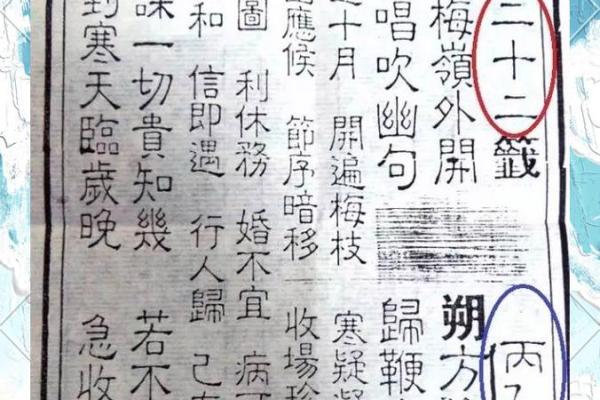 二十二籤 丙
梅嶺外開 朔方
唱吹幽句 歸鞭
十月 開遍梅枝 寒疑
應候 節序暗移 收場
圖 利休務 婚不宜 病
和 信即遇 行人歸 己
味一切貴知幾 若不
到寒天臨歲晚 急收